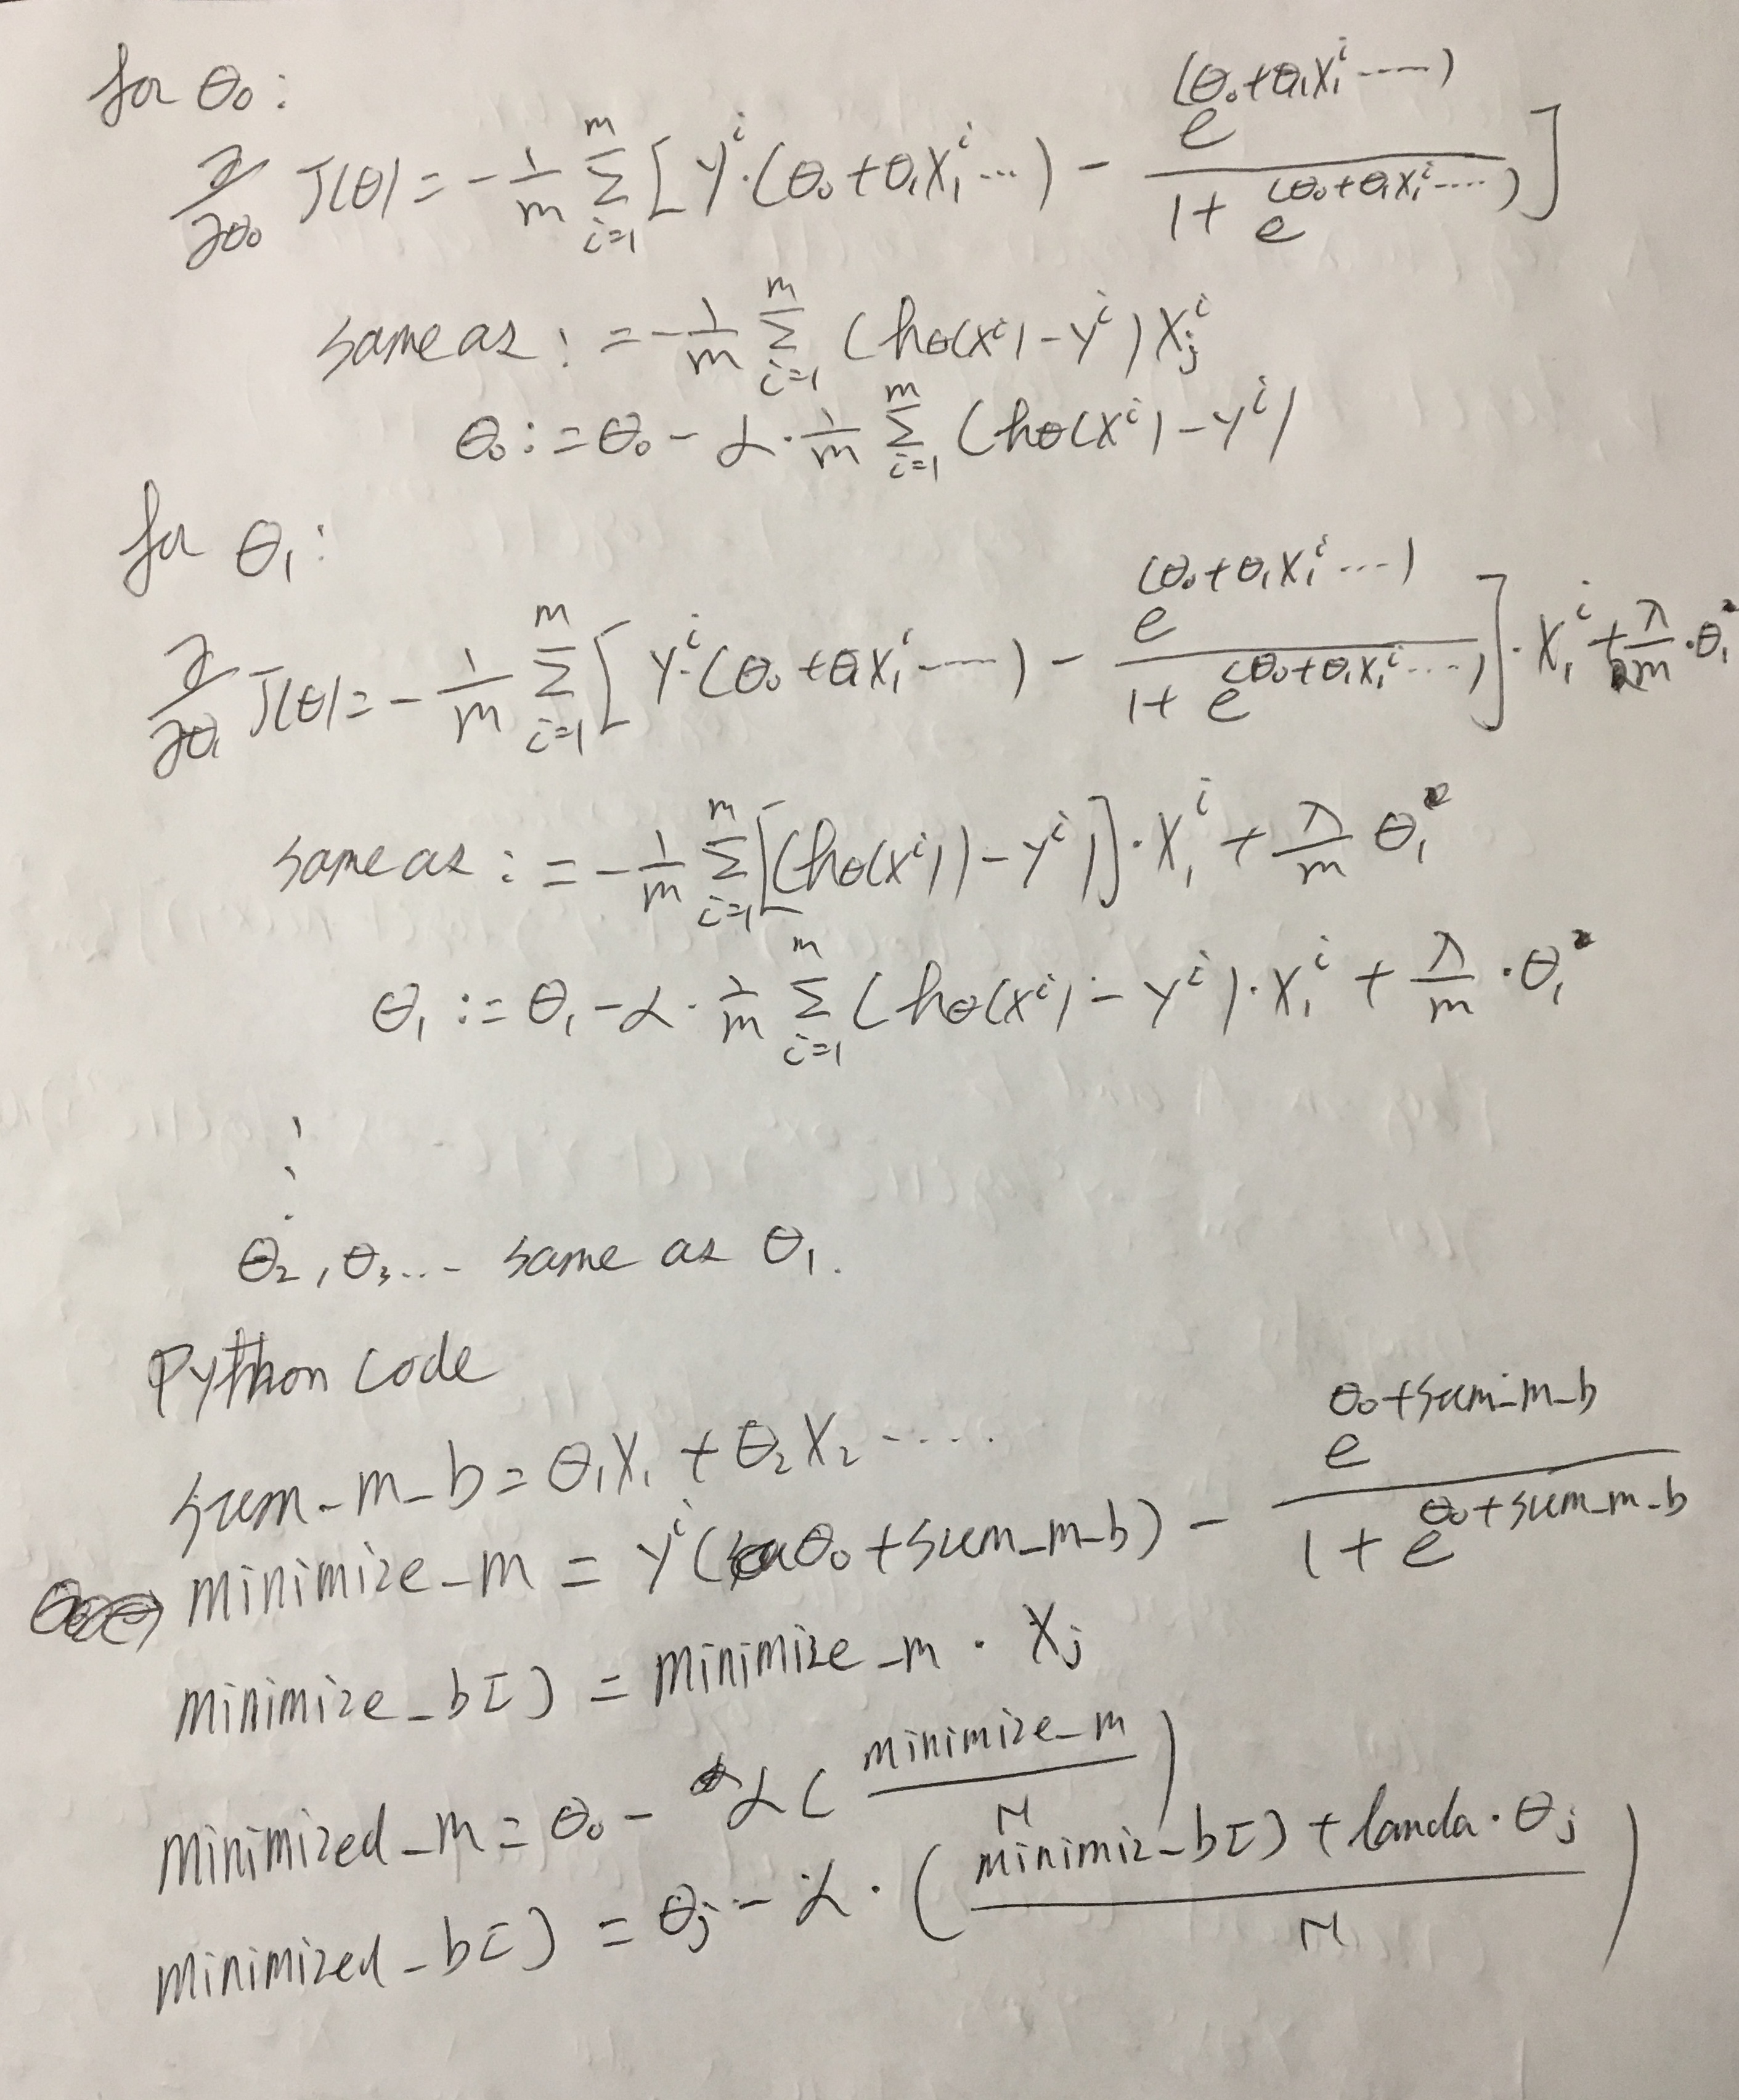 for θ₀ :
∂/∂θ₀ J(θ) = - 1/m Σ_{i=1}^{m} [ y^i·(θ₀ + θ₁x₁^i ...) - e^{(θ₀+θ₁x₁^i ·····)} / (1 + e^{(θ₀+θ₁x₁^i ····)}) ]
same as : = - 1/m Σ_{i=1}^{m} (hθ(x^i) - y^i) x_j^i
θ₀ := θ₀ - α · 1/m Σ_{i=1}^{m} (hθ(x^i) - y^i)
for θ₁ :
∂/∂θ₁ J(θ) = - 1/m Σ_{i=1}^{m} [ y^i·(θ₀ + θ₁x₁^i ·····) - e^{(θ₀+θ₁x₁^i ···)} / (1 + e^{(θ₀+θ₁x₁^i ····)}) ] · x₁^i + λ/m · θ₁
same as : = - 1/m Σ_{i=1}^{m} [(hθ(x^i)) - y^i)] · x₁^i + λ/m θ₁
θ₁ := θ₁ - α · 1/m Σ_{i=1}^{m} (hθ(x^i) - y^i) · x₁^i + λ/m · θ₁
⋮
θ₂, θ₃... same as θ₁.
Python code
sum_m_b = θ₁x₁ + θ₂x₂ ·····
minimize_m = y^i(θ₀ + sum_m_b) - e^{θ₀+sum_m_b} / (1 + e^{θ₀+sum_m_b})
minimize_b[] = minimize_m · x_j
minimized_m = θ₀ - α ( minimize_m / M )
minimized_b[] = θ_j - α · ( (minimiz_b[] + landa · θ_j) / M )